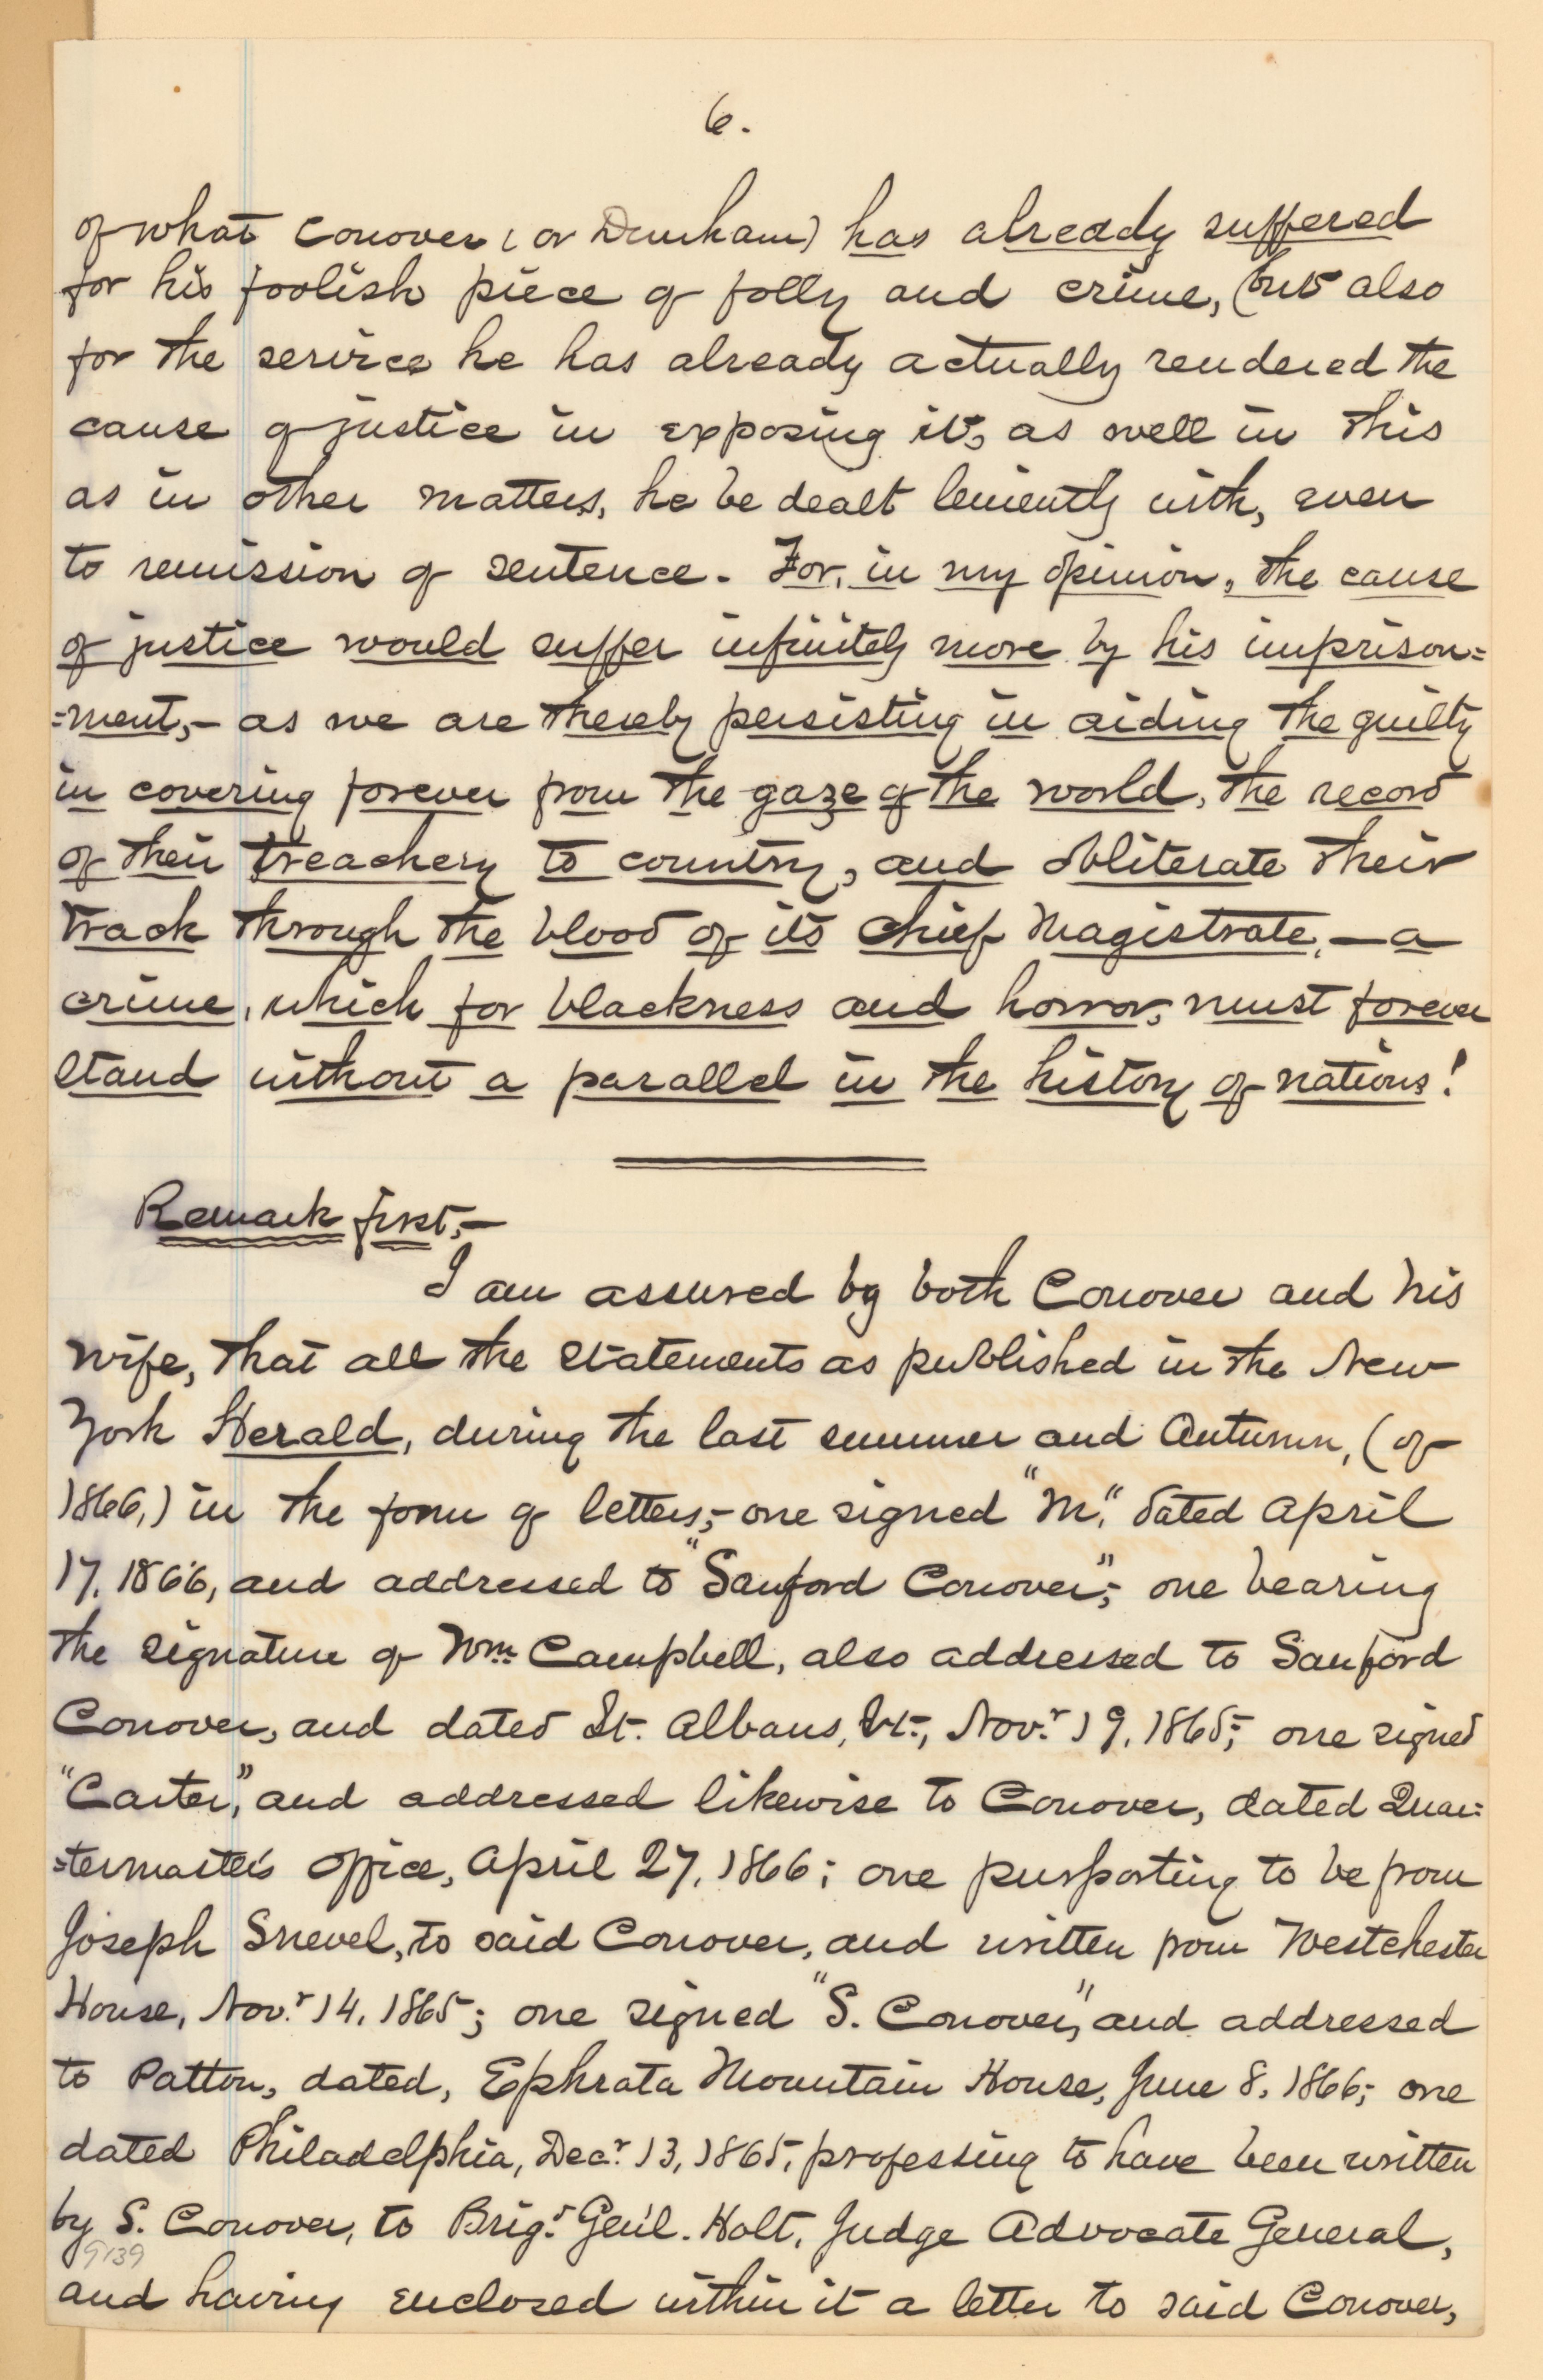 6.
of what Conover (or Dunham) has already suffered
for his foolish piece of folly and crime, (but also
for the service he has already actually rendered the
cause of justice in exposing it, as well in this
as in other matters, he be dealt leniently with, even
to remission of sentence. For, in my opinion, the cause
of justice would suffer infinitely more by his imprison=
=ment,- as we are thereby persisting in aiding the guilty
in covering forever from the gaze of the world, the record
of their treachery to country, and obliterate their
track through the blood of its chief Magistrate,—a
crime, which for blackness and horror, must forever
stand without a parallel in the history of nations!
Remark first,—
I am assured by both Conover and his
wife, that all the statements as published in the New
York Herald, during the last summer and Autumn, (of
1866,) in the form of letters,- one signed "M", dated April
17, 1866, and addressed to "Sanford Conover"; one bearing
the signature of Wm. Campbell, also addressed to Sanford
Conover, and dated St. Albans, Vt., Nov.r 19, 1865; one signed
"Carter," and addressed likewise to Conover, dated Quar=
=termaster's office, April 27, 1866; one purporting to be from
Joseph Snevel, to said Conover, and written from Westchester
House, Nov.r 14, 1865; one signed "S. Conover," and addressed
to Patton, dated, Ephrata Mountain House, June 8, 1866; one
dated Philadelphia, Dec.r 13, 1865, professing to have been written
by S. Conover, to Brig.r Gen'l. Holt, Judge Advocate General,
9139
and having enclosed within it a letter to said Conover,